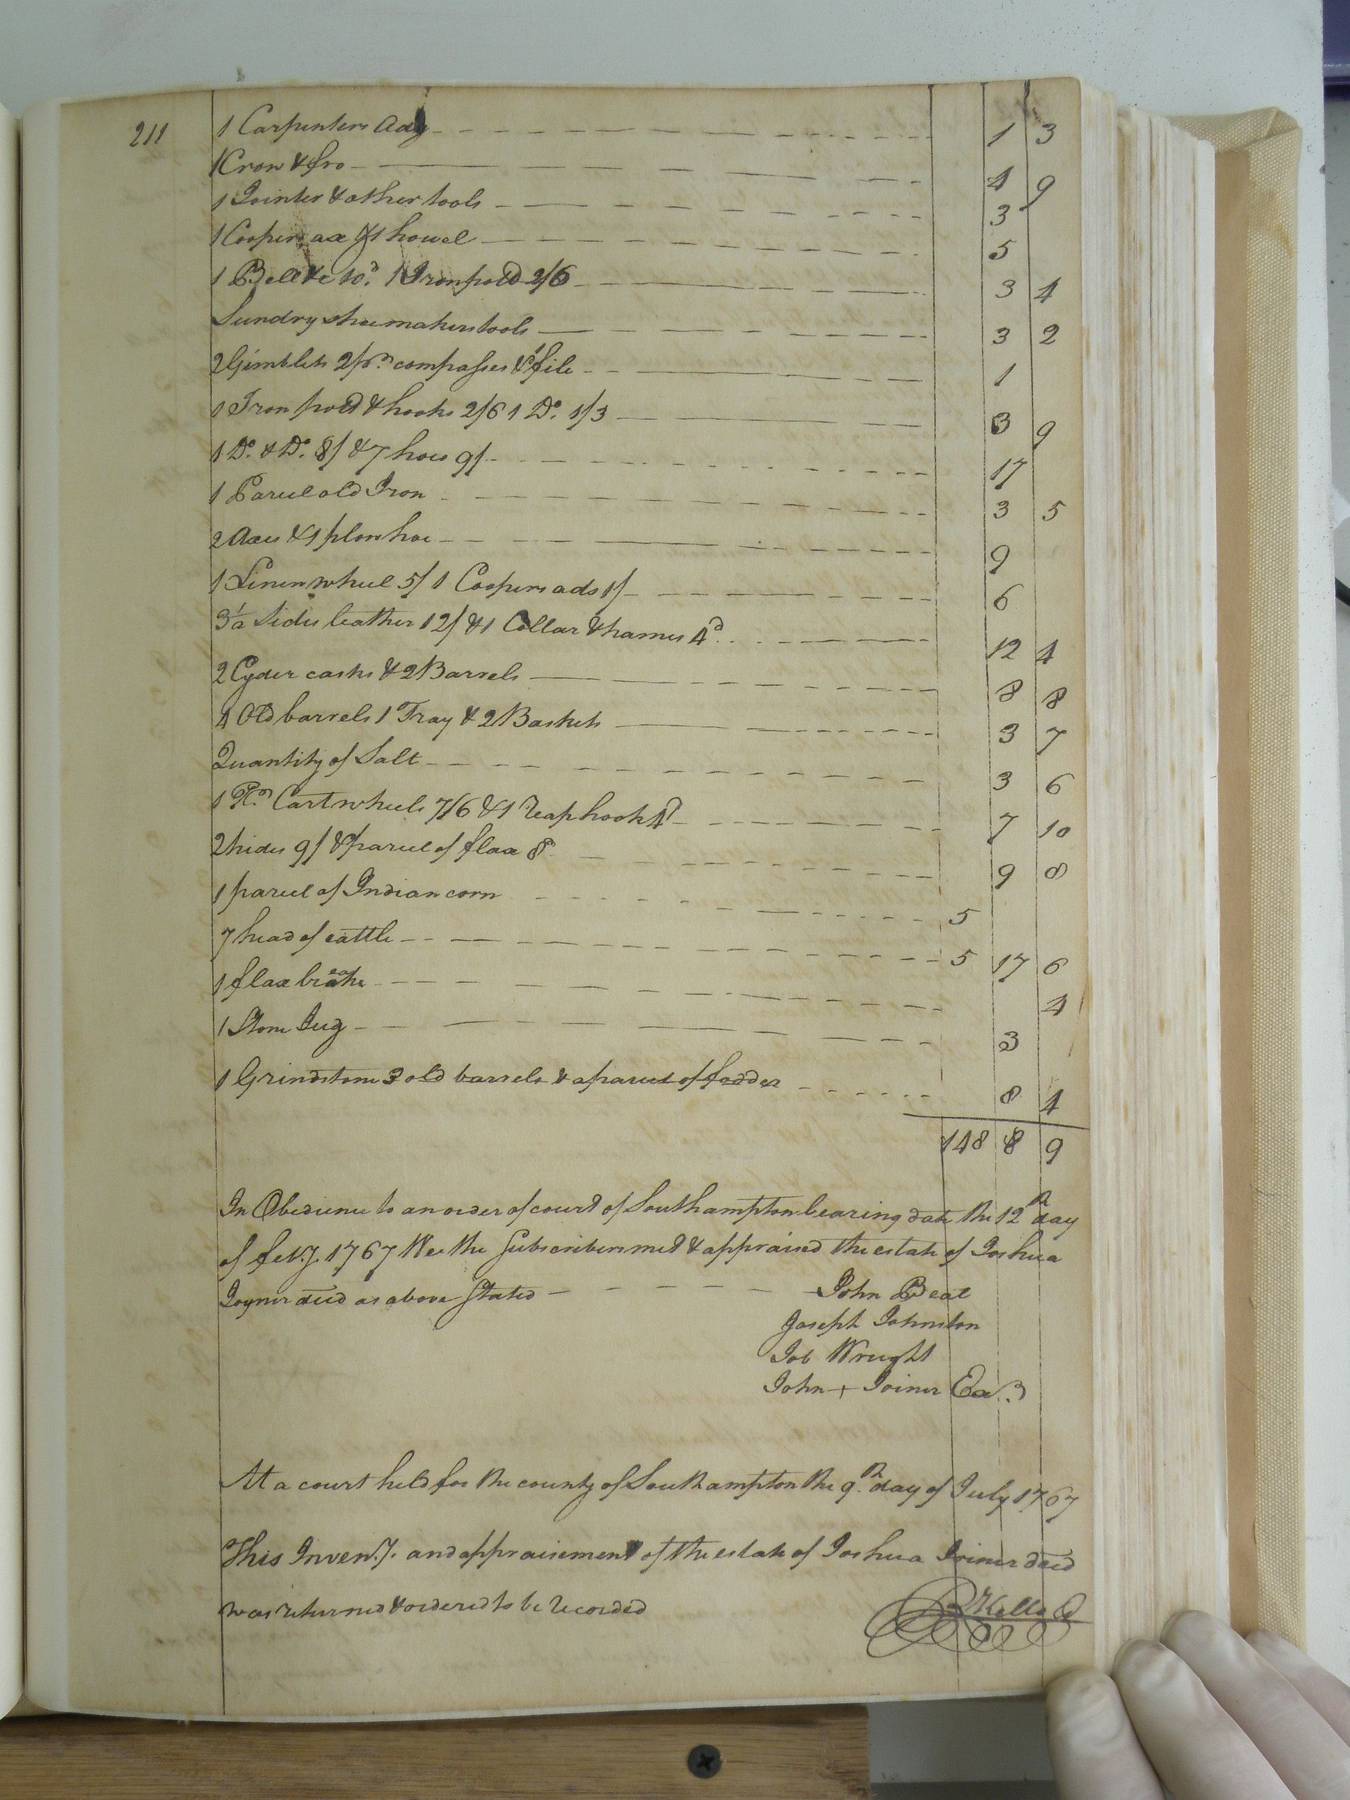 211
1 Carpenters adz 1 3
1 Crow & fro 4 9
1 Jointer & other tools 3
1 Coopers ax & 1 howel 5
1 Bell &c 10d 1 Iron pott 2/6 3 4
Sundry shoemakers tools 3 2
2 Gimblets 2 pr. compasses & 1 file 1
1 Iron pott & hooks 2/6 1 Do. 1/3 3 9
1 Do. & Do. 8/ & 7 hoes 9/ 17
1 Parcel old Iron 3 5
2 Axes & 1 plow hoe 9
1 Linen wheel 5/ 1 Coopers ads 1/ 6
3½ Sides leather 12/ & 1 Collar & hames 4d 12 4
2 Cyder casks & 2 Barrels 8 8
4 Old barrels 1 Tray & 2 Baskets 3 7
Quantity of Salt 3 6
1 Pr. Cart wheels 7/6 & 1 reap hook 4d 7 10
2 hides 9/ & parcel of flax 8d 9 8
1 parcel of Indian corn 5
7 head of cattle 5 17 6
1 flax brake 4
1 Stone Jug 3
1 Grindstone 3 old barrels & a parcel of fodder 8 4
148 8 9
In Obedience to an order of court of Southampton bearing date the 12th day
of feby. 1767 Wee the Subscribers met & appraised the estate of Joshua
Joyner decd as above Stated John Beal
Joseph Johnston
Job Wright
John + Joiner Exr.
At a court held for the county of Southampton the 9th day of July 1767
This Inven.y. and appraisement of the estate of Joshua Joiner decd
was returned & ordered to be recorded
R Kello